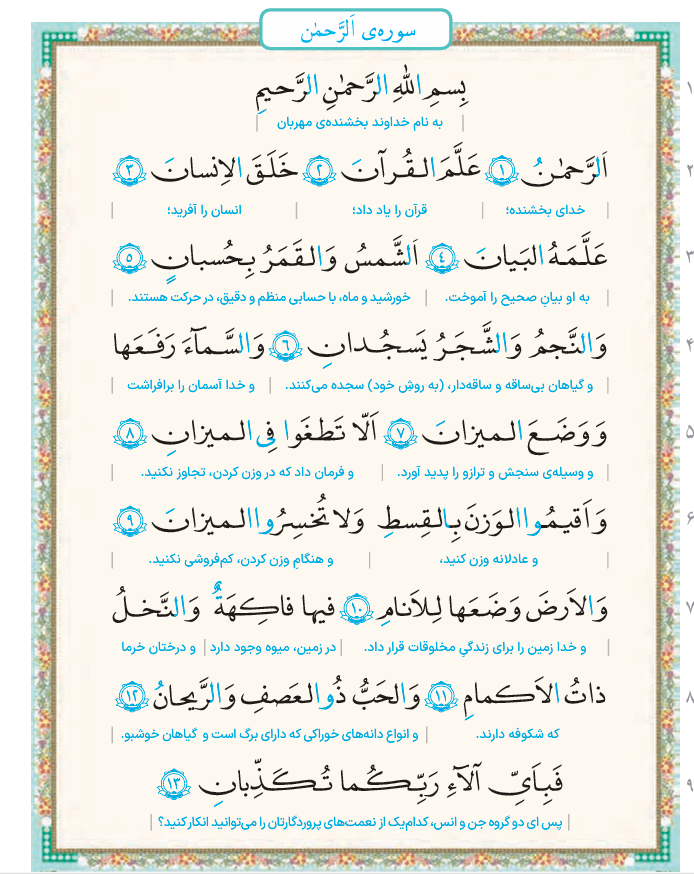 سوره‌ی اَلرَّحمٰن
۱
بِسمِ اللّٰهِ الرَّحمٰنِ الرَّحیمِ
به نام خداوند بخشنده‌ی مهربان
۲
اَلرَّحمٰنُ ۱ عَلَّمَ القُرآنَ ۲ خَلَقَ الاِنسانَ ۳
خدای بخشنده؛ قرآن را یاد داد؛ انسان را آفرید؛
۳
عَلَّمَهُ البَیانَ ٤ اَلشَّمسُ وَ القَمَرُ بِحُسبانٍ ٥
به او بیانِ صحیح را آموخت. خورشید و ماه، با حسابی منظم و دقیق، در حرکت هستند.
۴
وَ النَّجمُ وَ الشَّجَرُ یَسجُدانِ ٦ وَ السَّمآءَ رَفَعَها
و گیاهان بی‌ساقه و ساقه‌دار، (به روشِ خود) سجده می‌کنند. و خدا آسمان را برافراشت
۵
وَ وَضَعَ المیزانَ ۷ اَلّا تَطغَوا فِی المیزانِ ۸
و وسیله‌ی سنجش و ترازو را پدید آورد. و فرمان داد که در وزن کردن، تجاوز نکنید.
۶
وَ اَقیمُوا الوَزنَ بِالقِسطِ وَ لا تُخسِرُوا المیزانَ ۹
و عادلانه وزن کنید، و هنگامِ وزن کردن، کم‌فروشی نکنید.
۷
وَ الاَرضَ وَضَعَها لِلاَنامِ ۱۰ فیها فاکِهَةٌ وَ النَّخلُ
و خدا زمین را برای زندگیِ مخلوقات قرار داد. در زمین، میوه وجود دارد و درختان خرما
۸
ذاتُ الاَکمامِ ۱۱ وَ الحَبُّ ذُو العَصفِ وَ الرَّیحانُ ۱۲
که شکوفه دارند. و انواع دانه‌های خوراکی که دارای برگ است و گیاهان خوشبو.
۹
فَبِاَیِّ آلآءِ رَبِّکُما تُکَذِّبانِ ۱۳
پس ای دو گروه جن و انس، کدام‌یک از نعمت‌های پروردگارتان را می‌توانید انکار کنید؟